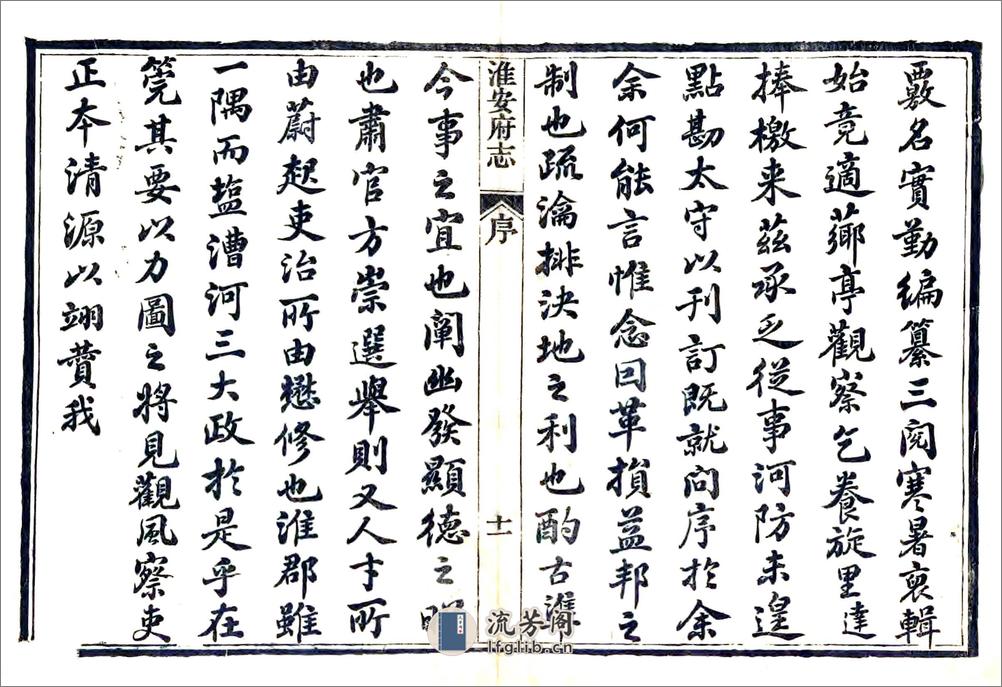 覈名實勤編纂三閱寒暑裒輯
始竟適薌亭觀察乞養旋里達
捧檄来茲承乏従事河防未遑
點勘太守以刊訂既就問序於余
余何能言惟念因革損益邦之
制也疏瀹排決地之利也酌古準
淮安府志
序
十一
今事之宜也闡幽發顯德之昭
也肅官方崇選舉則又人才所
由蔚起吏治所由懋修也淮郡雖
一隅而塩漕河三大政於是乎在
筦其要以力圖之將見觀風察吏
正本清源以翊贊我
流芳阁
lfglib.cn